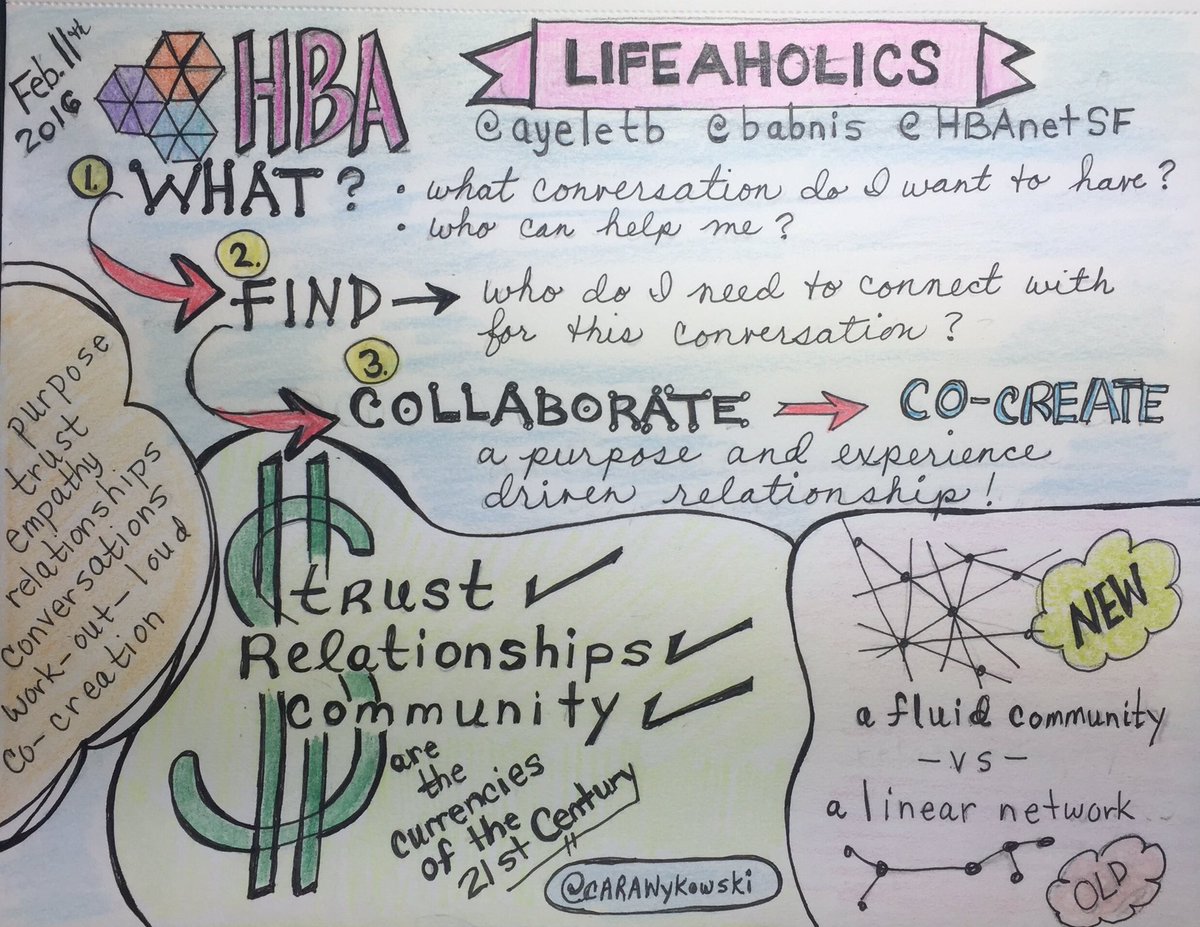 Feb. 11th
2016
HBA
LIFEAHOLICS
@ayeletb @babnis @HBAnetSF
1. WHAT?
• what conversation do I want to have?
• who can help me?
2. FIND →
who do I need to connect with
for this conversation?
3. COLLABORATE → CO-CREATE
a purpose and experience
driven relationship!
purpose
trust
empathy
relationships
conversations
work-out-loud
co-creation
$
trust ✓
Relationships ✓
community ✓
are
the
currencies
of the
21st Century
@CARAWykowski
NEW
a fluid community
- VS -
a linear network
OLD